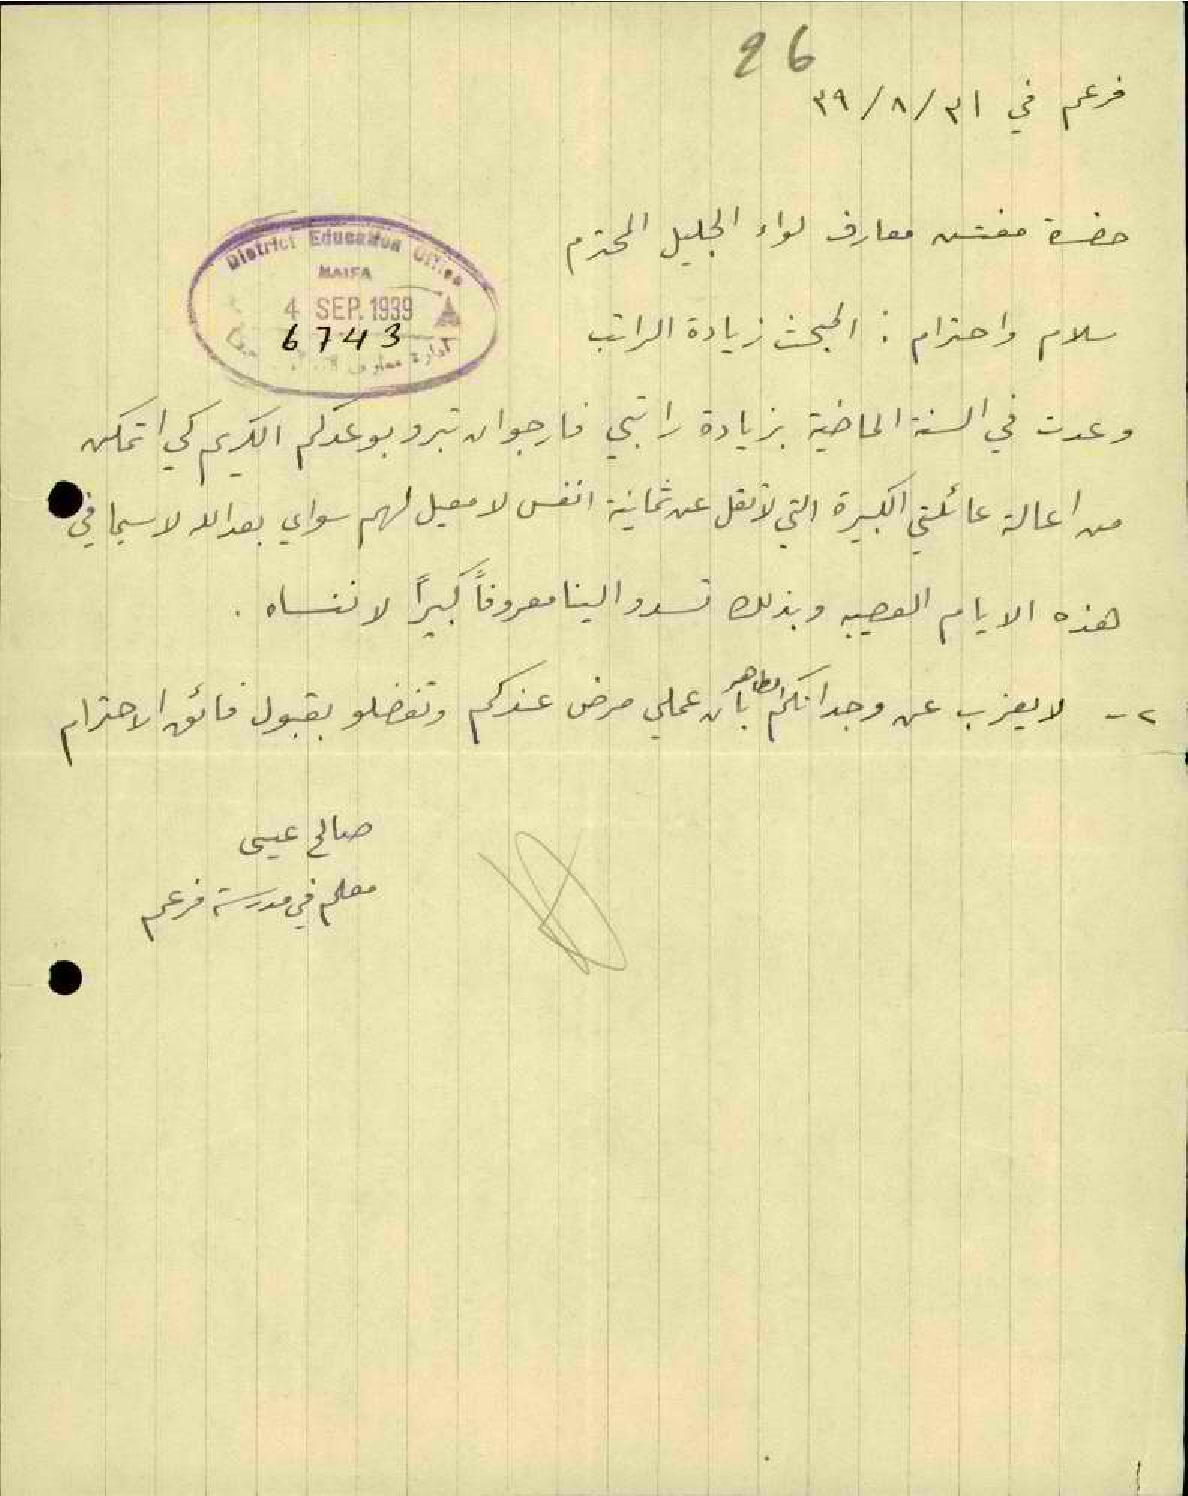 26
فرعم في ٣١/٨/٣٩
حضرة مفتش معارف لواء الجليل المحترم
District Education Office
HAIFA
4 SEP. 1939
6743
ادارة معارف
حيفا
سلام واحترام : المبحث زيادة الراتب
وعدت في السنة الماضية بزيادة راتبي فارجو ان تبروا بوعدكم الكريم كي اتمكن
من اعالة عائلتي الكبيرة التي لا تقل عن ثمانية انفس لا معيل لهم سواي بعد الله لا سيما في
هذه الايام العصيبه وبذلك تسدو الينا معروفاً كبيراً لا ننساه .
٢- لا يعزب عن وجدانكم الطاهر بان عملي مرض عندكم وتفضلو بقبول فائق الاحترام
صالح عيسى
معلم في مدرسة فرعم